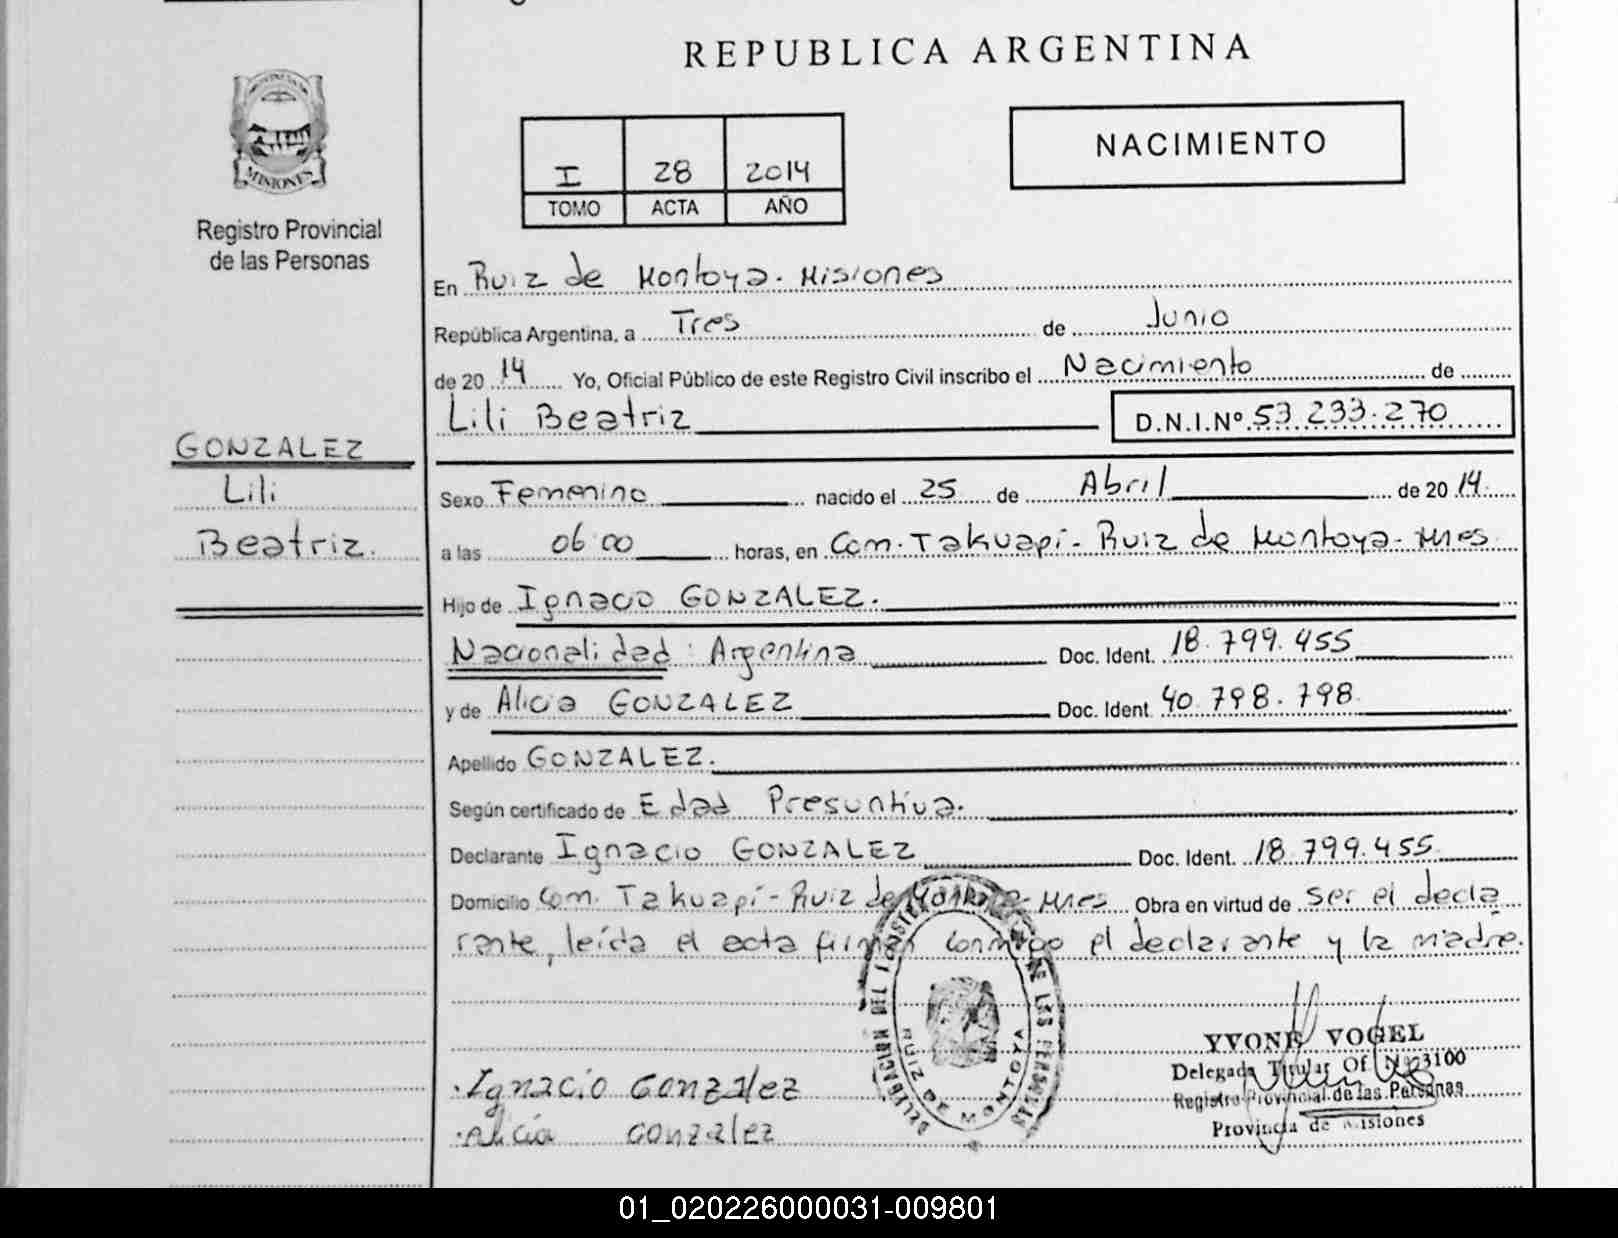 REPUBLICA ARGENTINA
MISIONES
Registro Provincial
de las Personas
I 28 2014
TOMO ACTA AÑO
NACIMIENTO
En Ruiz de Montoya. Misiones
República Argentina, a Tres de Junio
de 20 14 Yo, Oficial Público de este Registro Civil inscribo el Nacimiento de
Lili Beatriz D.N.I.Nº 53.233.270
GONZALEZ
Lili
Beatriz.
Sexo Femenino nacido el 25 de Abril de 20 14
a las 06 00 horas, en Com. Takuapí - Ruiz de Montoya - Mnes
Hijo de Ignacio GONZALEZ.
Nacionalidad: Argentina Doc. Ident. 18.799.455
y de Alicia GONZALEZ Doc. Ident 40.798.798
Apellido GONZALEZ.
Según certificado de Edad Presuntiva.
Declarante Ignacio GONZALEZ Doc. Ident. 18.799.455
Domicilio Com. Takuapí - Ruiz de Montoya - Mnes Obra en virtud de ser el decla
rante, leída el acta firman conmigo el declarante y la madre.
RUIZ DE MONTOYA
YVONE VOGEL
Delegada Titular Of 3100
Registro Provincial de las Personas
Provincia de Misiones
Ignacio Gonzalez
Alicia Gonzalez
01_020226000031-009801